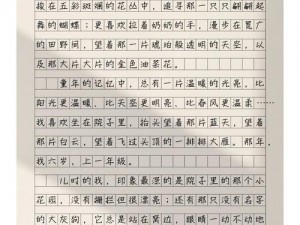 撩在五彩斑斓的花丛中，追寻那一只只翩翩起
舞的蝴蝶；更喜欢拉着奶奶的手，漫步在宽广
的田野间，望着那一片琥珀般透明的天空，以
及那大片大片的金色油菜花。
童年的记忆中，总有一片温暖的光亮，比
阳光更温暖，比天空更明亮，比春风更温柔……
我喜欢坐在院子里，抬头望着那片蓝天，望着
那片白云，望着飞过头顶的一排排大雁。那年，
我六岁，上一年级。
儿时的我，印象最深的是院子里的那个小
花园，没有栅栏但很漂亮；还有那只没有名字
的大灰狗，它总是站在窝边，眼睛一动不动地